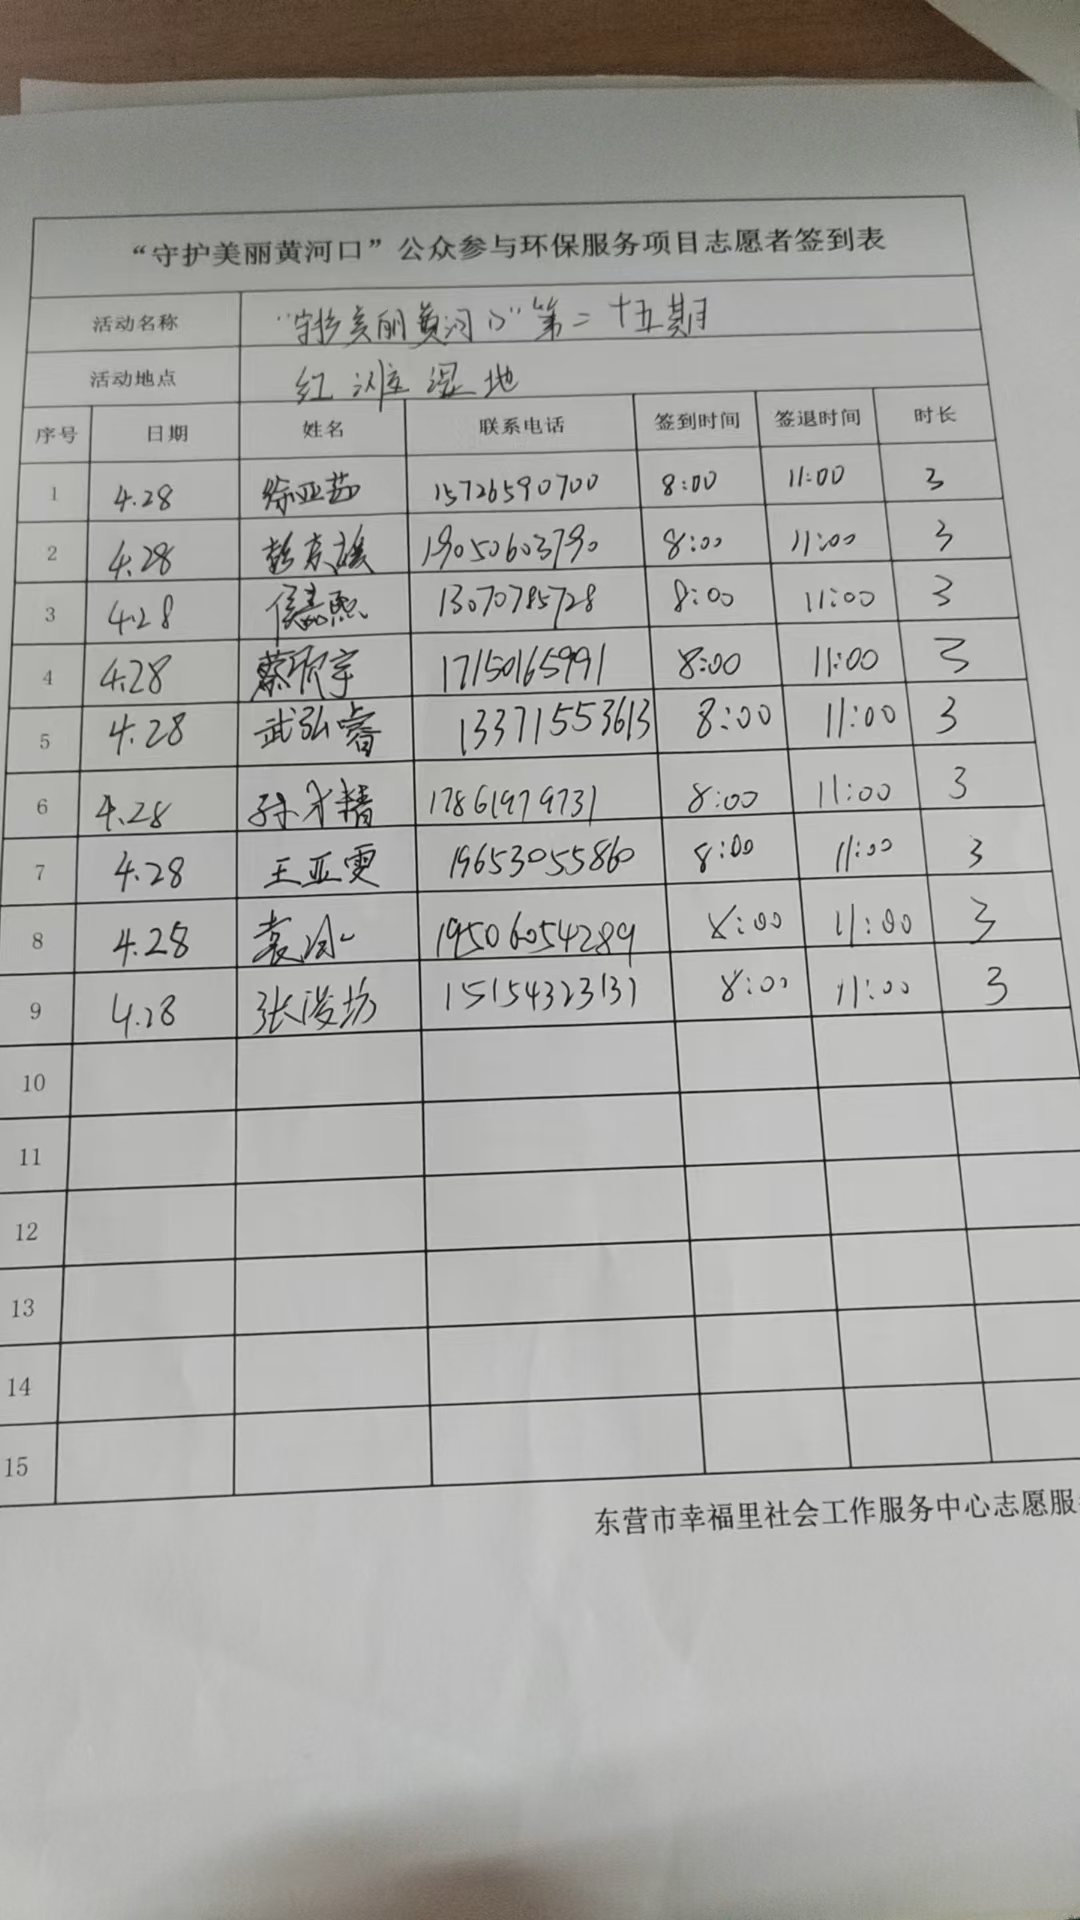 “守护美丽黄河口”公众参与环保服务项目志愿者签到表
活动名称 “守护美丽黄河口”第二十五期
活动地点 红滩湿地
序号 日期 姓名 联系电话 签到时间 签退时间 时长
1 4.28 徐亚茹 15726590700 8:00 11:00 3
2 4.28 19050603790 8:00 11:00 3
3 4.28 侯嘉熙 13070785728 8:00 11:00 3
4 4.28 蔡欣宇 17150165991 8:00 11:00 3
5 4.28 武弘睿 13371553613 8:00 11:00 3
6 4.28 17861979731 8:00 11:00 3
7 4.28 王亚雯 19653055860 8:00 11:00 3
8 4.28 袁冰 19506054289 8:00 11:00 3
9 4.28 15154323137 8:00 11:00 3
10
11
12
13
14
15
东营市幸福里社会工作服务中心志愿服